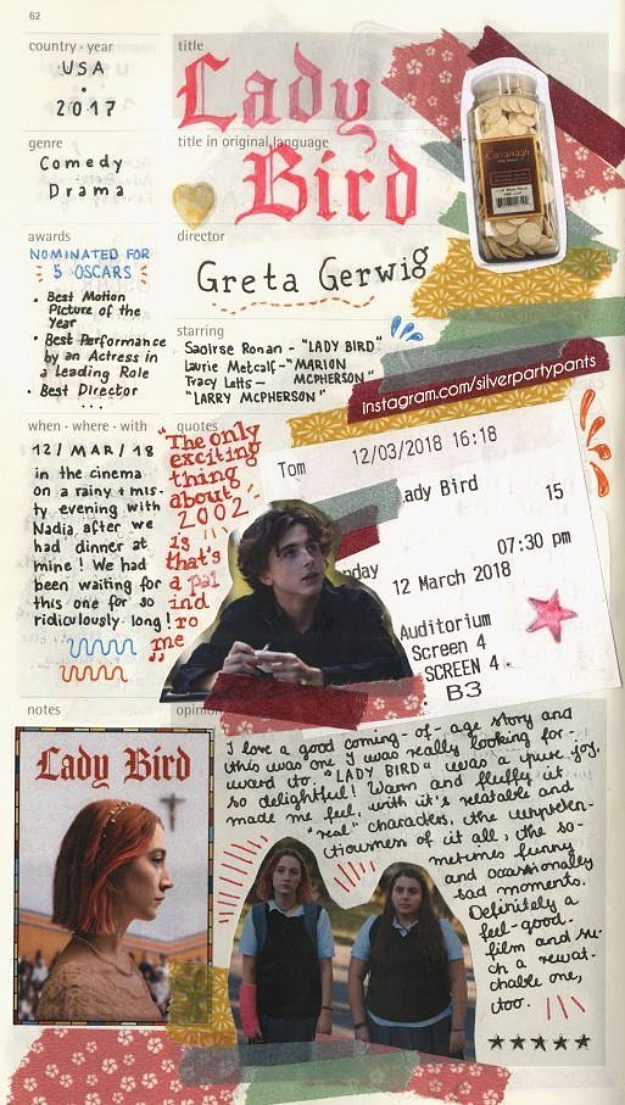 62
country · year
USA
•
2017
title
Lady
title in original language
Bird
genre
Comedy
Drama
awards
NOMINATED FOR
5 OSCARS
• Best Motion
Picture of the
Year
• Best Performance
by an Actress in
a Leading Role
• Best Director
...
director
Greta Gerwig
starring
Saoirse Ronan - "LADY BIRD"
Laurie Metcalf - "MARION
MCPHERSON"
Tracy Letts -
"LARRY MCPHERSON"
instagram.com/silverpartypants
when · where · with
12 / MAR / 18
in the cinema
on a rainy + mis-
ty evening with
Nadia after we
had dinner at
mine! We had
been waiting for
this one for so
ridiculously long!
quotes
"The only
exciting
thing
about
2002
is
that's
a pal
ind
ro
me"
Tom
12/03/2018 16:18
ady Bird
15
07:30 pm
nday
12 March 2018
Auditorium
Screen 4
SCREEN 4
B3
notes
Lady Bird
opinion
I love a good coming-of-age story and
this was one I was really looking for-
ward to. "LADY BIRD" was a pure joy,
so delightful! Warm and fluffy it
made me feel, with it's relatable and
"real" characters, the unpreten-
tiousness of it all, the so-
metimes funny
and occasionally
sad moments.
Definitely a
feel-good-
film and su-
ch a rewat-
chable one,
too.
★★★★★
Cavanagh